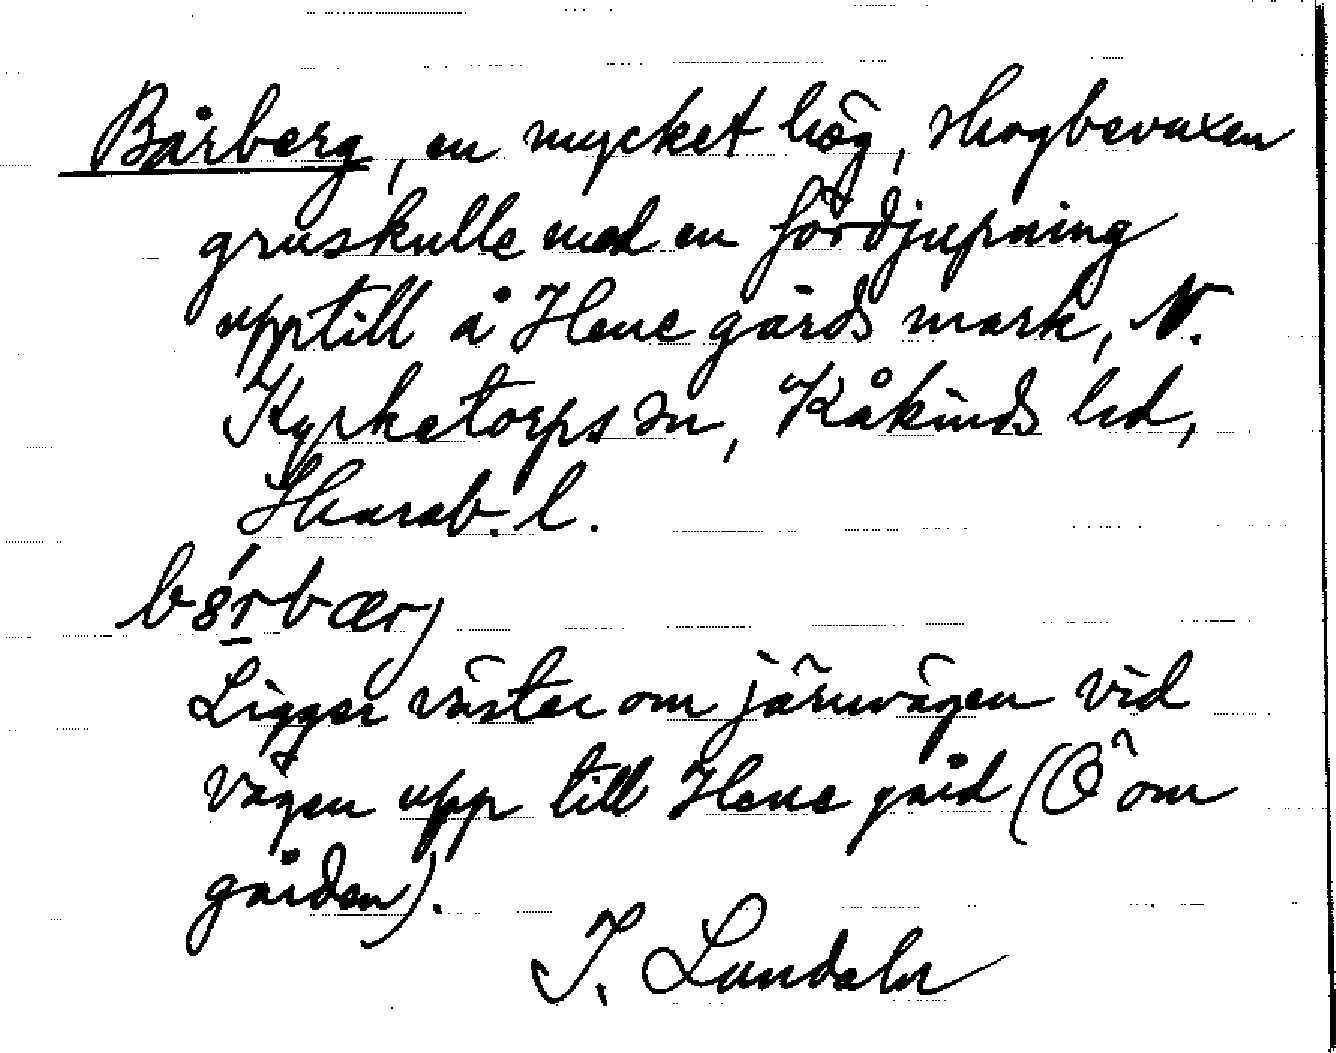 Bårberg, en mycket hög, skogbevuxen
gruskulle med en fördjupning
upptill å Hene gårds mark, N.
Kyrketorps sn, Kåkinds hd,
Skarab. l.
Ligger väster om järnvägen vid
vägen upp till Hene gård (Ö om
gården).
I. Lundahl